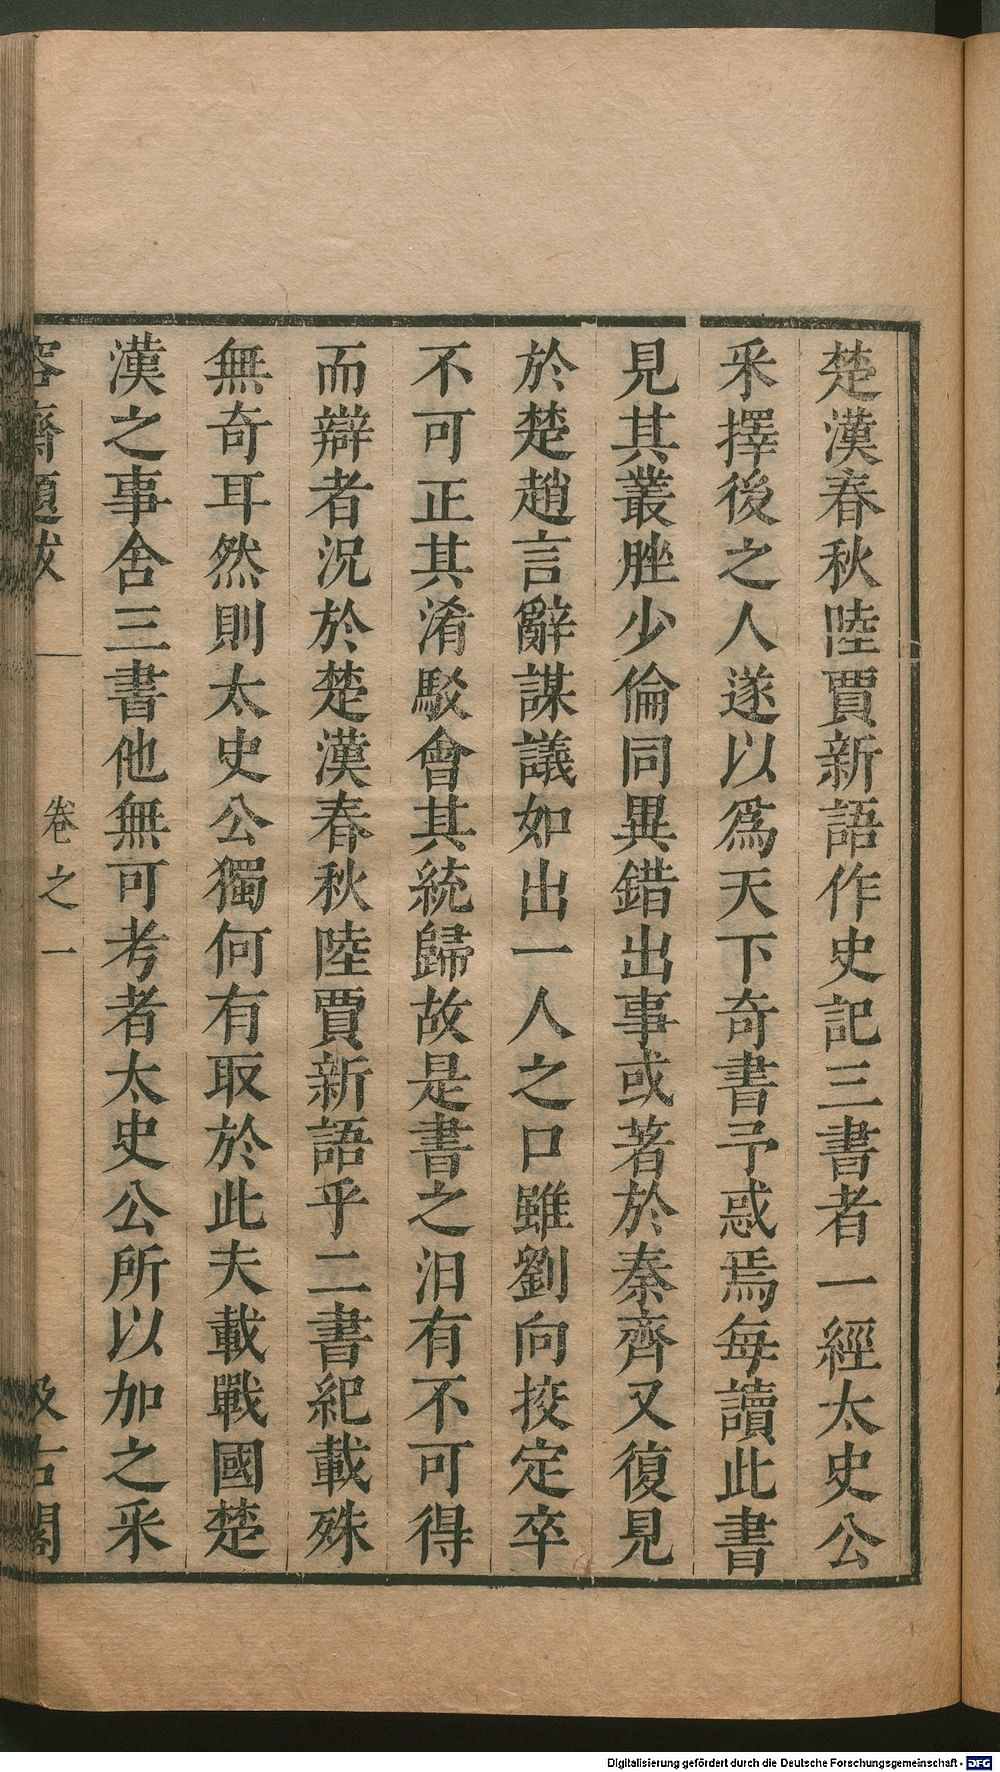 楚漢春秋陸賈新語作史記三書者一經太史公
采擇後之人遂以爲天下奇書予惑焉每讀此書
見其叢脞少倫同異錯出事或著於秦齊又復見
於楚趙言辭謀議如出一人之口雖劉向挍定卒
不可正其淆駁會其統歸故是書之汩有不可得
而辯者況於楚漢春秋陸賈新語乎二書紀載殊
無奇耳然則太史公獨何有取於此夫載戰國楚
漢之事舍三書他無可考者太史公所以加之采
容齋題跋 卷之一 汲古閣
Digitalisierung gefördert durch die Deutsche Forschungsgemeinschaft - DFG